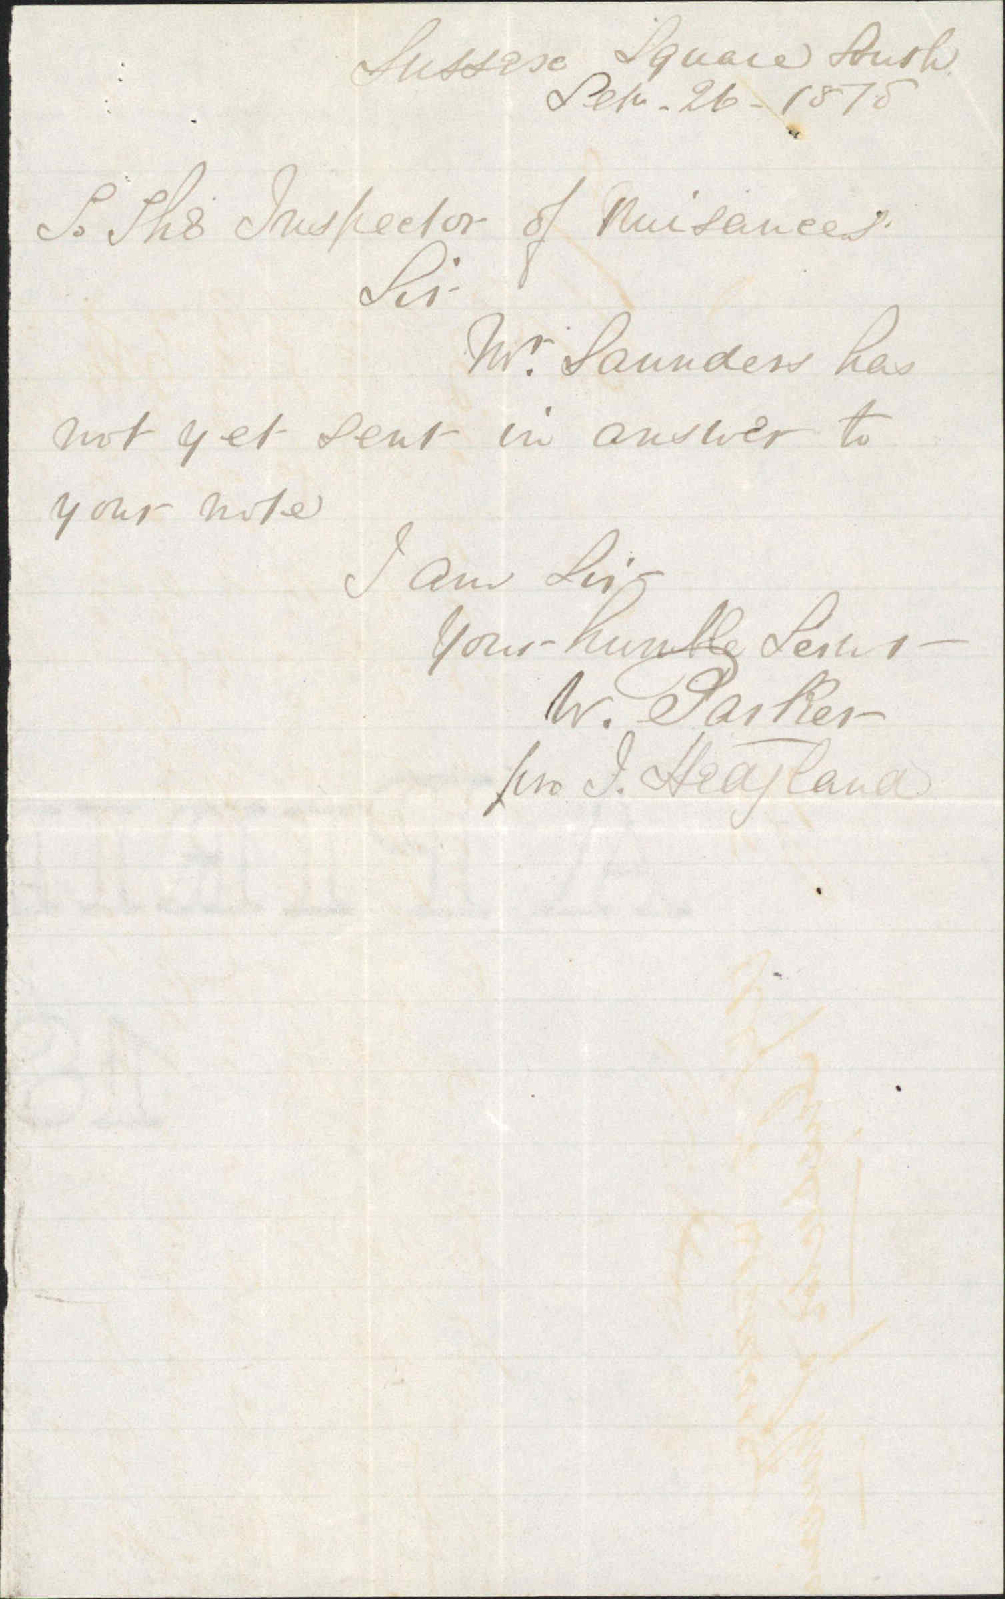 Sussex Square
Sep. 26 - 1878
To The Inspector of Nuisances.
Sir
Mr. Saunders has
not yet sent in answer to
your note
I am Sir
Your humble Servt
W. Parker
pro J.